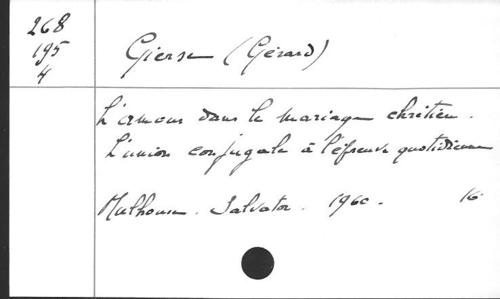 268
195
4
Gierse (Gérard)
L'amour dans le mariage chrétien.
L'union conjugale à l'épreuve quotidienne
Mulhouse. Salvator. 1960. 16